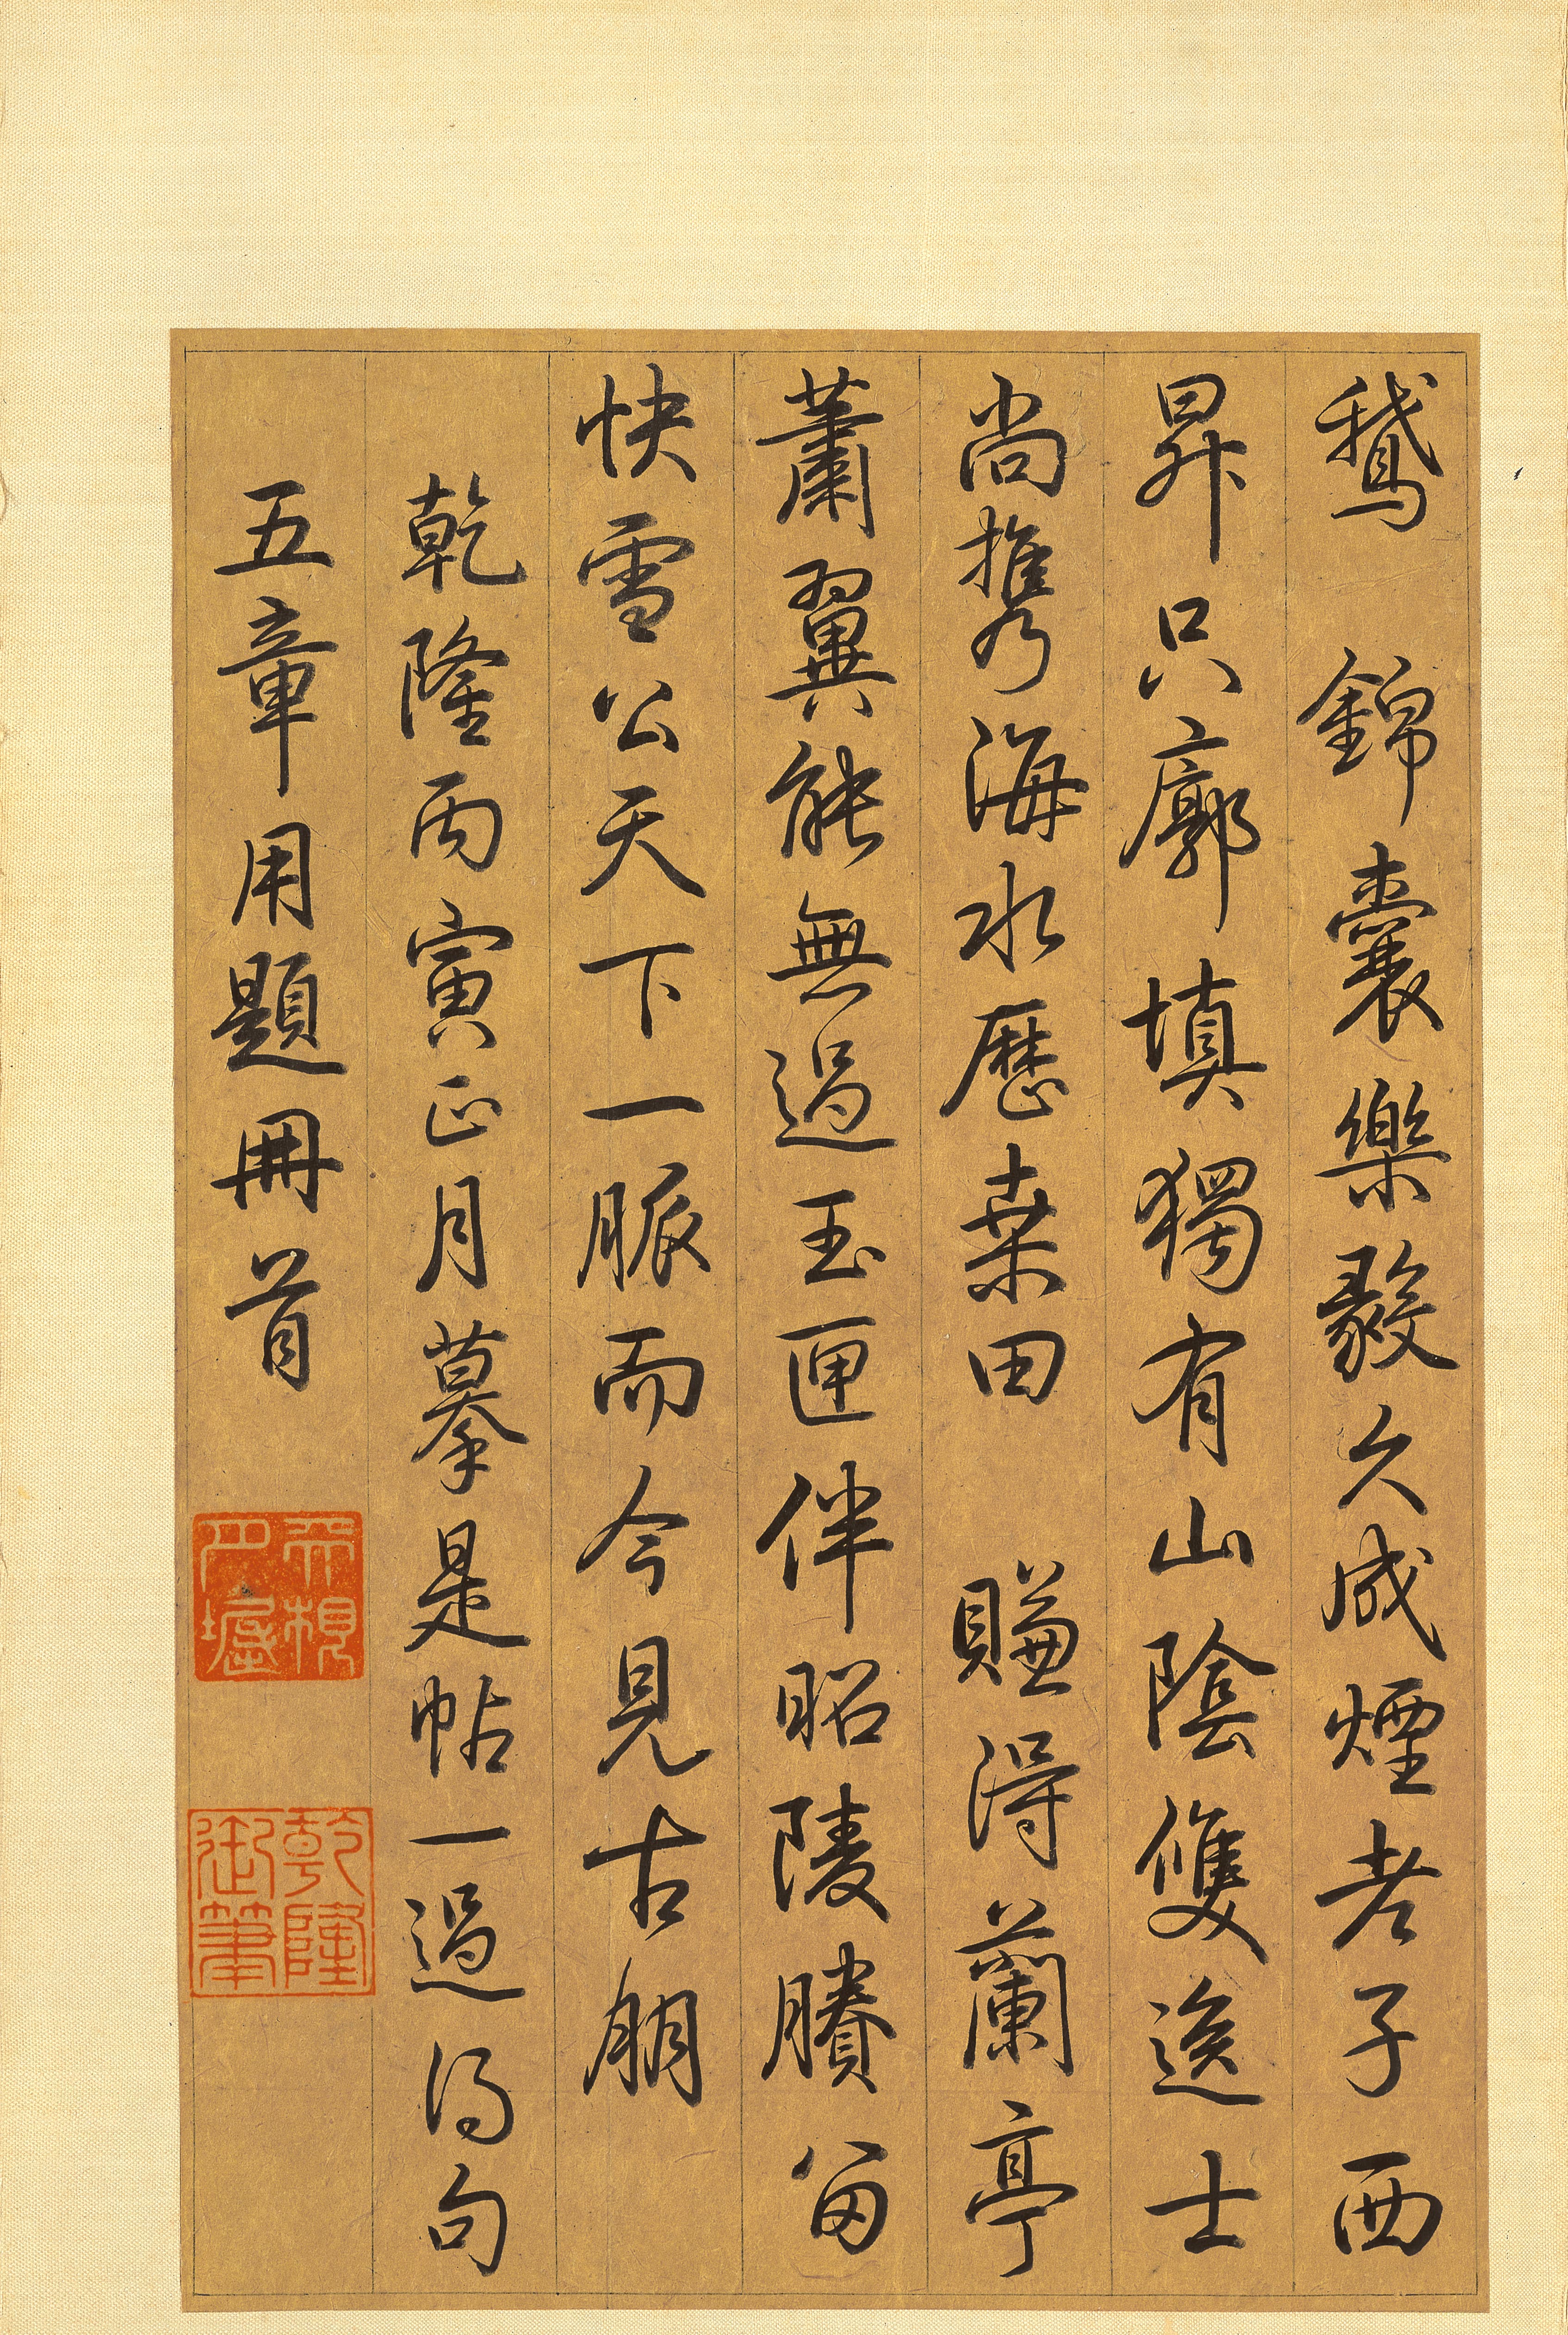 鵞　錦囊樂毅久成煙老子西
昇只廓填獨有山陰雙逸士
尚攜海水歷桑田　賺得蘭亭
蕭翼能無過玉匣伴昭陵賸留
快雪公天下一脈而今見古朋
乾隆丙寅正月摹是帖一過得句
五章用題冊首
乾隆
御筆